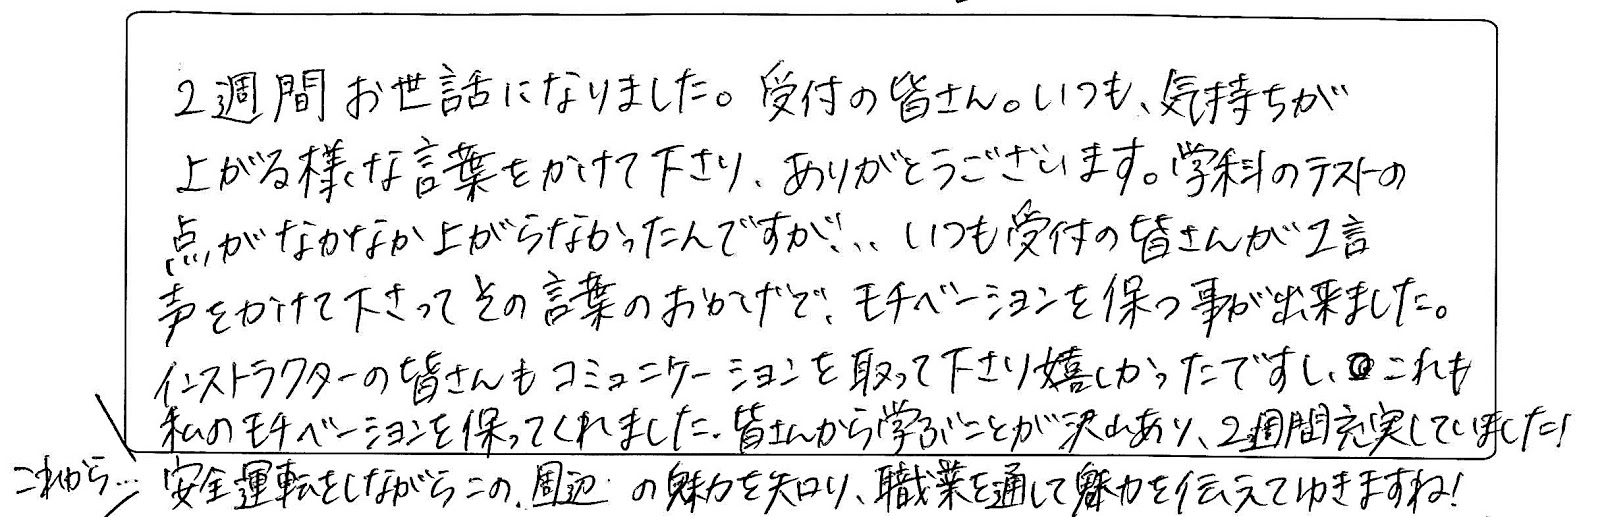 2週間お世話になりました。受付の皆さん。いつも、気持ちが
上がる様な言葉をかけて下さり、ありがとうございます。学科のテストの
点がなかなか上がらなかったんですが、、、いつも受付の皆さんが1言
声をかけて下さってその言葉のおかげで、モチベーションを保つ事が出来ました。
インストラクターの皆さんもコミュニケーションを取って下さり嬉しかったですし、これも
私のモチベーションを保ってくれました。皆さんから学ぶことが沢山あり、2週間充実していました!
これから… 安全運転をしながらこの、周辺の魅力を知り、職業を通して魅力を伝えてゆきますね!